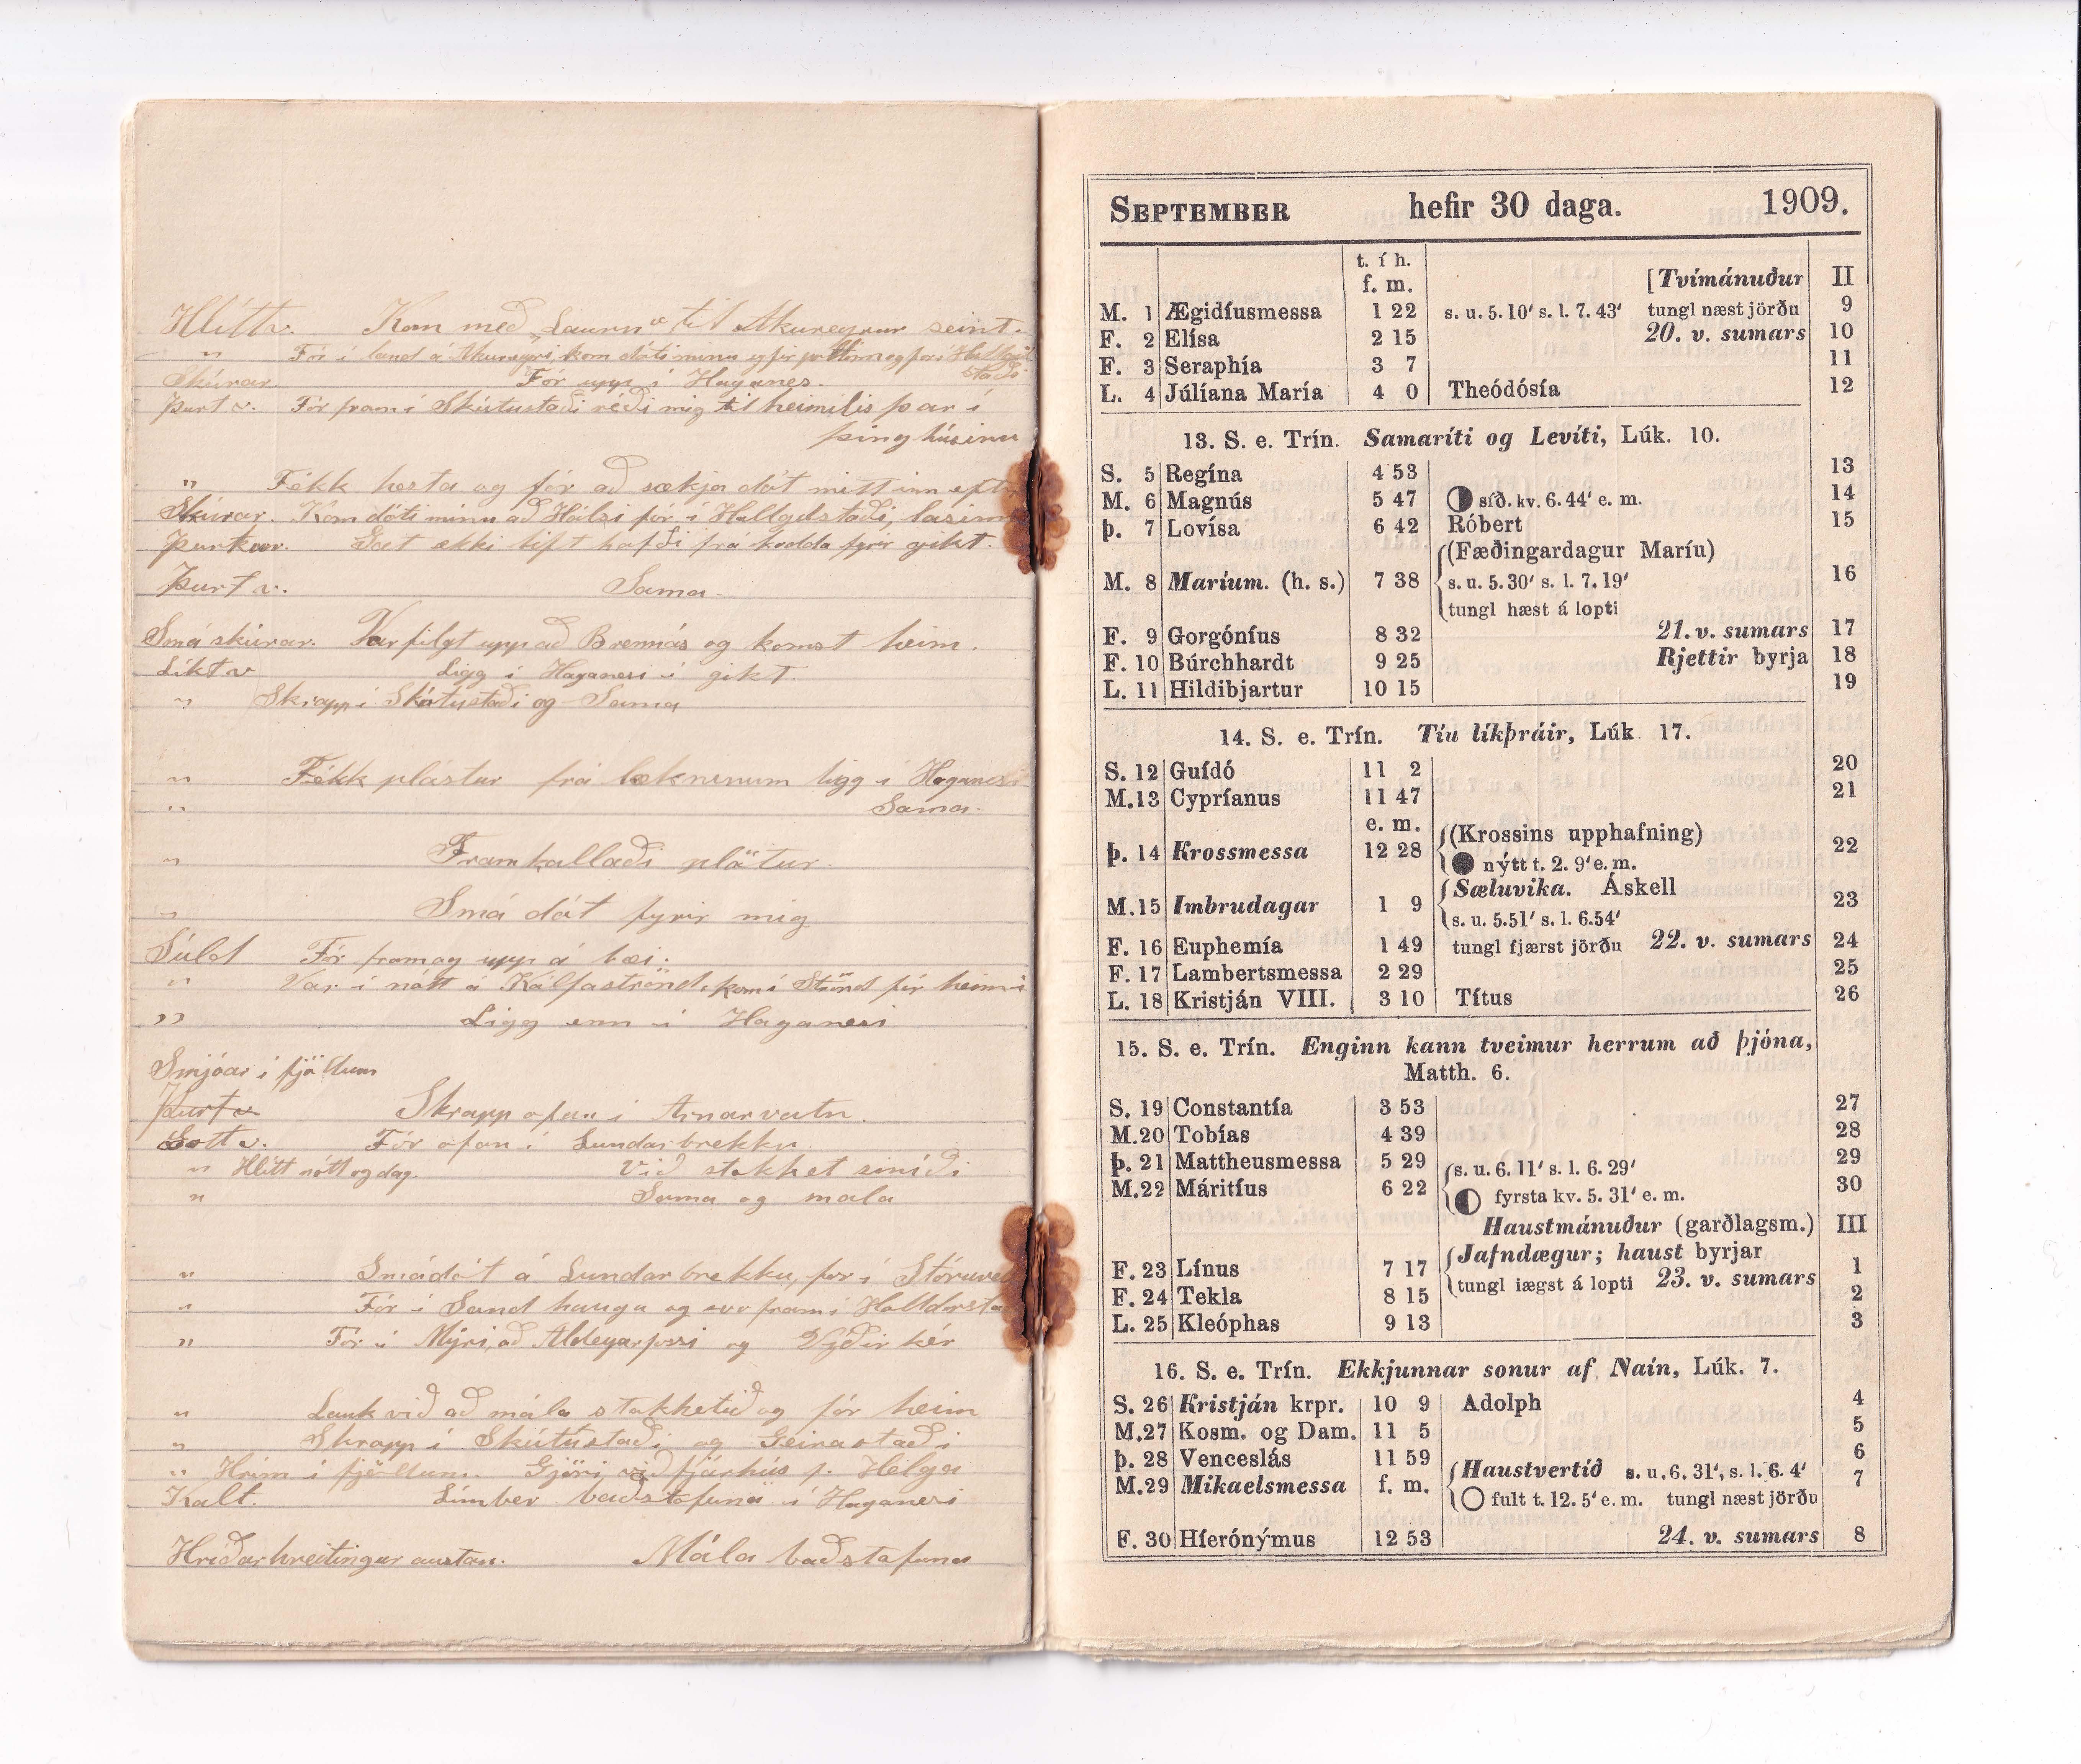 Hlítt v. Kom með „Laura“ til Akureyrar seint.
" Fór í land á Akureyri, kom dóti mínu yfir
Skúrar. Fór upp í Haganes.
staði
Þurt v. Fór fram í Skútustaði réði mig til heimilis þar í
þinghúsinu
" Fékk hesta og fór að sækja dót mitt inn eftir
Skúrar. Kom dóti mínu að Hálsi fór í Hallgilstaði, lasinn
Þurkur. Gat ekki lift höfði frá kodda fyrir gikt.
Þurt v. Sama.
Smá skúrar. Var filgt upp að Brennás og komst heim.
Líkt v Ligg í Haganesi í gikt.
" Skrapp í Skútustaði og Sama
" Fékk plástur frá lækninum ligg í Haganesi
" Sama.
" Framkallaði plötur.
" Smá dót fyrir mig
Súld Fór fram og upp á bæi.
" Var í nótt á Kálfaströnd, kom í fór heim
" Ligg enn í Haganesi
Snjóar í fjöllum
Þurt v Skrapp ofan í Arnarvatn.
Gott v. Fór ofan í Lundarbrekku.
" Hlítt nótt og dag. Við stakket smíði
" Sama og mála
" Smádót á Lundarbrekku, fór í Stóruvelli
" Fór í Sandhauga og svo fram í Halldórsstaði
" Fór í Mýri, að Aldeyarfossi og Víðirkér
" Lauk við að mála stakketið og fór heim
" Skrapp í Skútustaði og Geirastaði
" Hrím í fjöllum. Gjöri við fjárhús f. Helga
Kalt. Límber baðstofuna í Haganesi
Hríðarhreitingur austan. Mála baðstofuna
SEPTEMBER hefir 30 daga. 1909.
t. í h.
f. m. [Tvímánuður II
M. 1 Ægidíusmessa 1 22 s. u. 5. 10′ s. l. 7. 43′ tungl næst jörðu 9
F. 2 Elísa 2 15 20. v. sumars 10
F. 3 Seraphía 3 7 11
L. 4 Júlíana María 4 0 Theódósía 12
13. S. e. Trín. Samaríti og Levíti, Lúk. 10.
S. 5 Regína 4 53 13
M. 6 Magnús 5 47 síð. kv. 6. 44′ e. m. 14
þ. 7 Lovísa 6 42 Róbert 15
(Fæðingardagur Maríu)
M. 8 Maríum. (h. s.) 7 38 s. u. 5. 30′ s. l. 7. 19′ 16
tungl hæst á lopti
F. 9 Gorgóníus 8 32 21. v. sumars 17
F. 10 Búrchhardt 9 25 Rjettir byrja 18
L. 11 Hildibjartur 10 15 19
14. S. e. Trín. Tíu líkþráir, Lúk. 17.
S. 12 Guídó 11 2 20
M. 13 Cypríanus 11 47 21
e. m. (Krossins upphafning)
þ. 14 Krossmessa 12 28 nýtt t. 2. 9′ e. m. 22
Sæluvika. Áskell
M. 15 Imbrudagar 1 9 s. u. 5.51′ s. l. 6.54′ 23
F. 16 Euphemía 1 49 tungl fjærst jörðu 22. v. sumars 24
F. 17 Lambertsmessa 2 29 25
L. 18 Kristján VIII. 3 10 Títus 26
15. S. e. Trín. Enginn kann tveimur herrum að þjóna,
Matth. 6.
S. 19 Constantía 3 53 27
M. 20 Tobías 4 39 28
þ. 21 Mattheusmessa 5 29 s. u. 6. 11′ s. l. 6. 29′ 29
M. 22 Máritíus 6 22 fyrsta kv. 5. 31′ e. m. 30
Haustmánuður (garðlagsm.) III
Jafndægur; haust byrjar
F. 23 Línus 7 17 tungl iægst á lopti 23. v. sumars 1
F. 24 Tekla 8 15 2
L. 25 Kleóphas 9 13 3
16. S. e. Trín. Ekkjunnar sonur af Naín, Lúk. 7.
S. 26 Kristján krpr. 10 9 Adolph 4
M. 27 Kosm. og Dam. 11 5 5
þ. 28 Venceslás 11 59 6
M. 29 Mikaelsmessa f. m. Haustvertíð s. u. 6. 31′, s. l. 6. 4′ 7
fult t. 12. 5′ e. m. tungl næst jörðu
F. 30 Híerónýmus 12 53 24. v. sumars 8